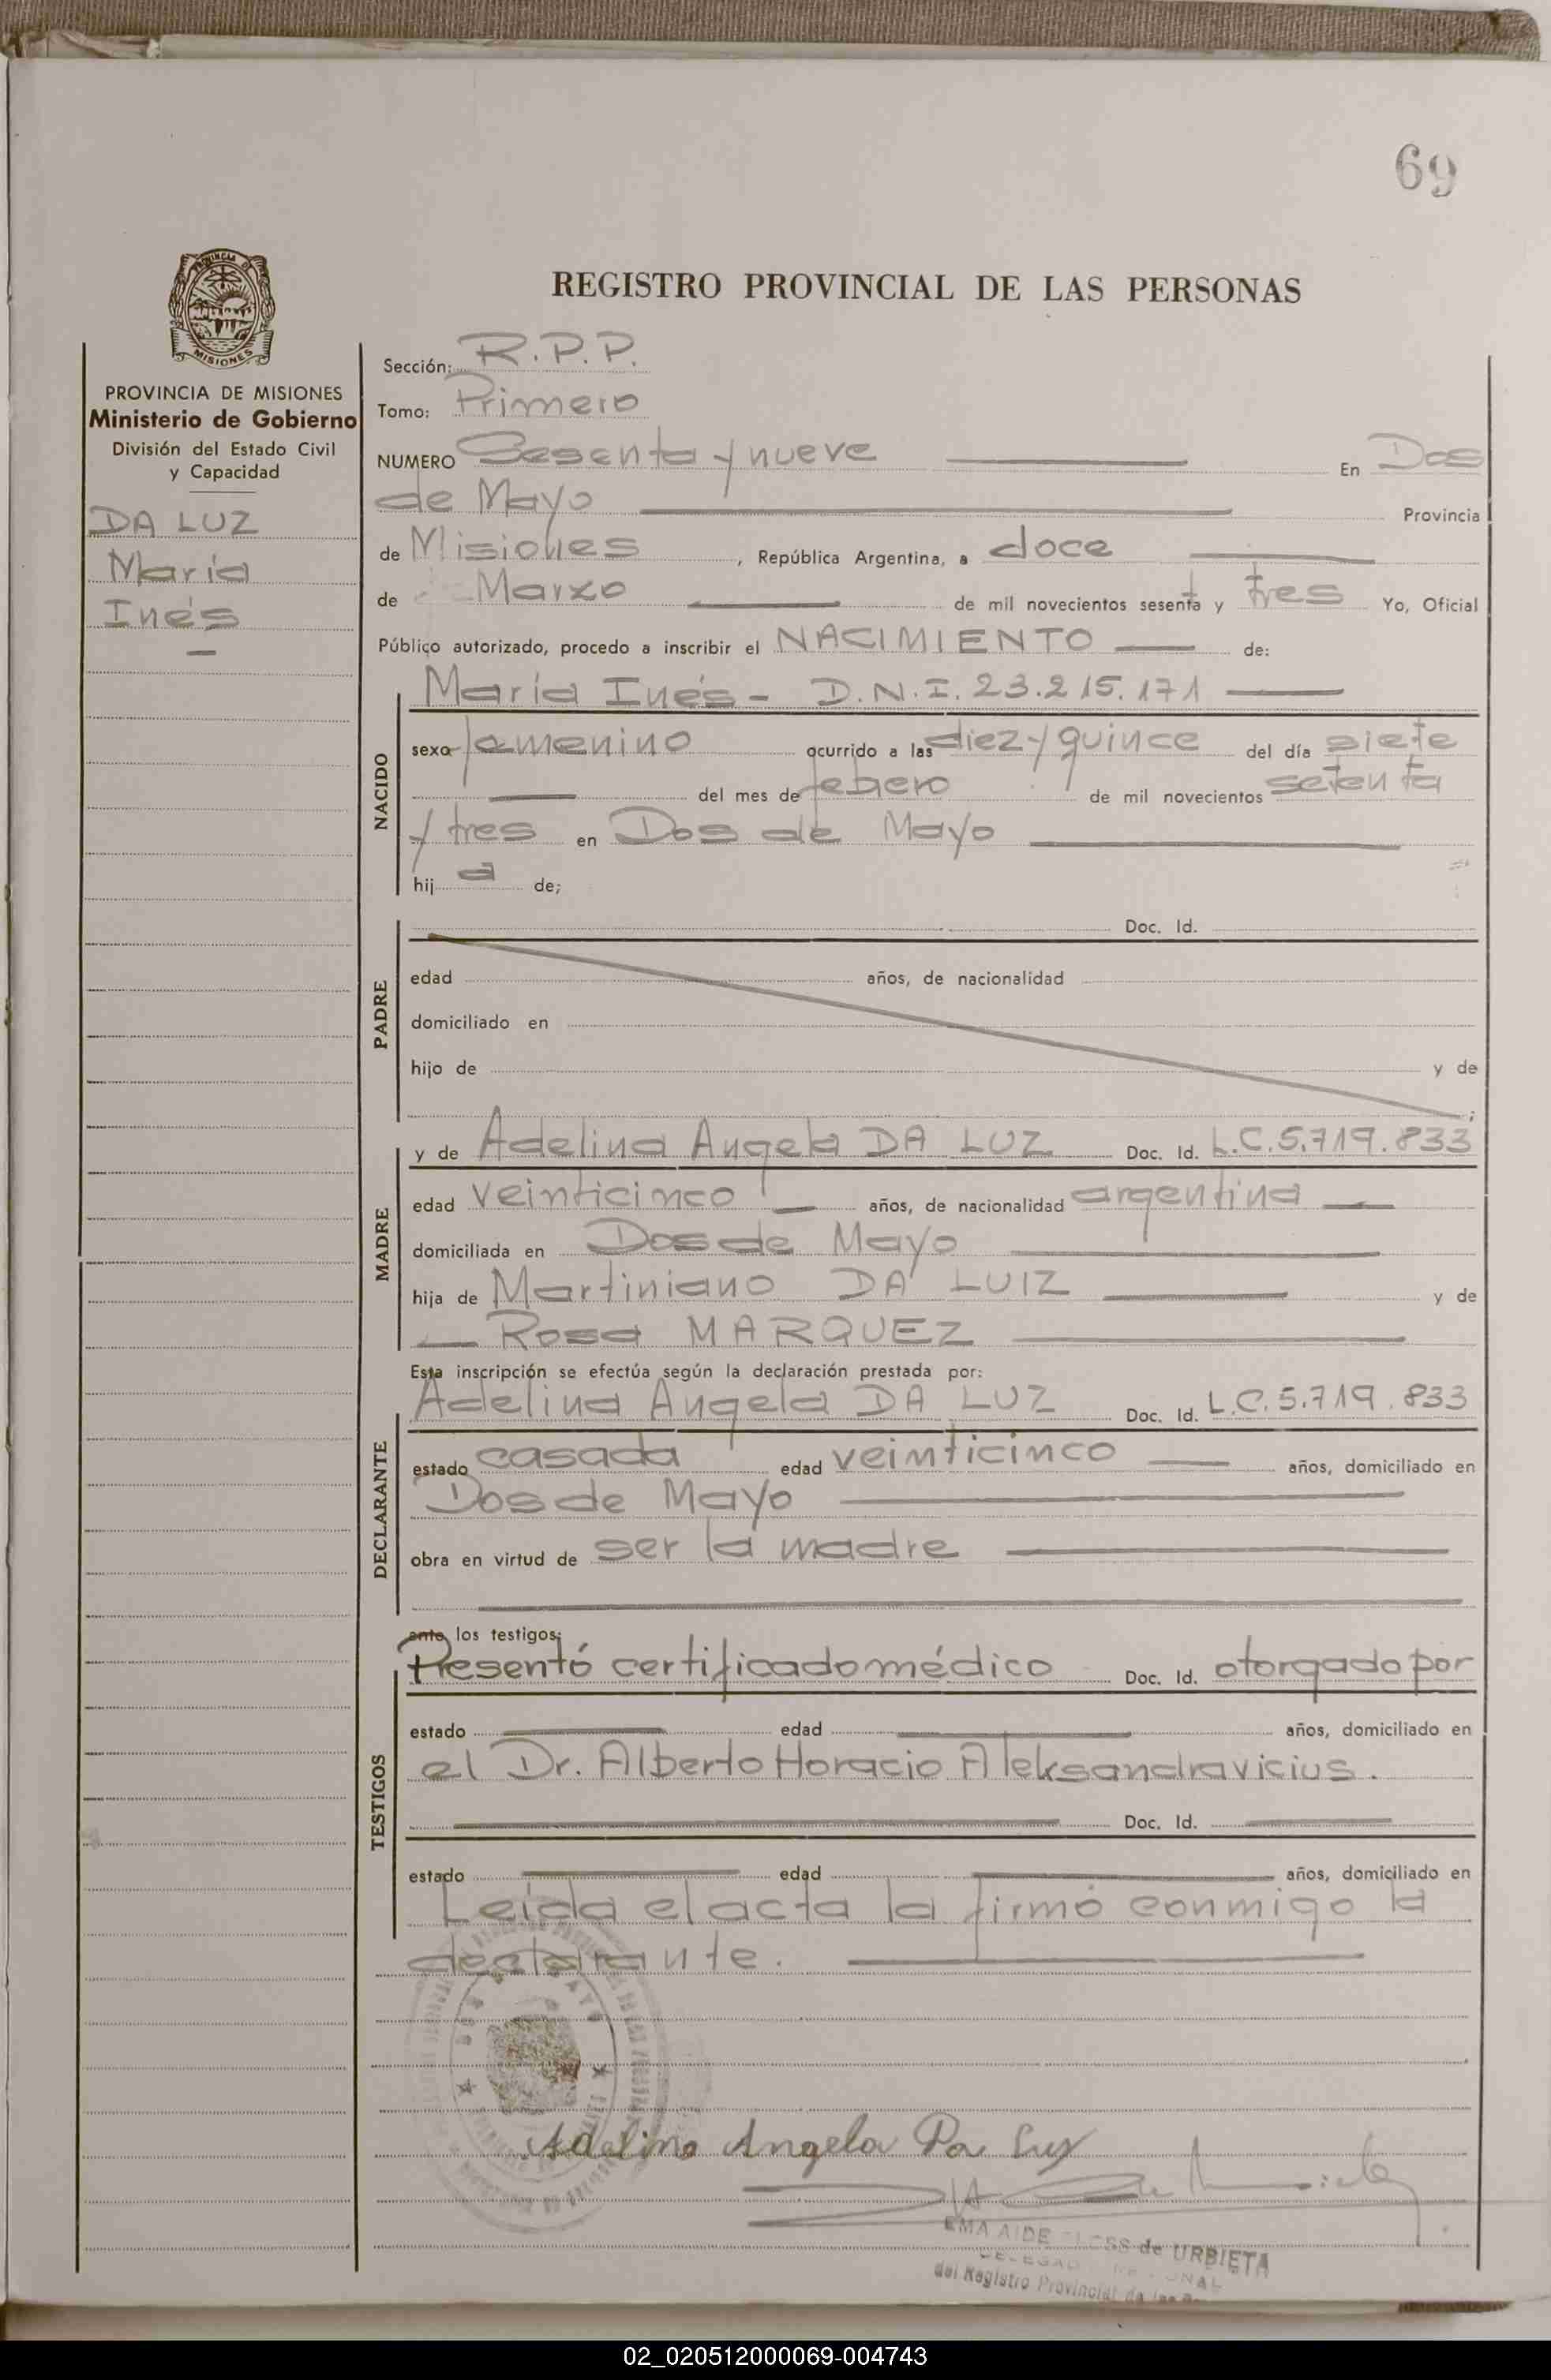 69
REGISTRO PROVINCIAL DE LAS PERSONAS
PROVINCIA DE MISIONES
Ministerio de Gobierno
División del Estado Civil
y Capacidad
DA LUZ
María
Inés
Sección: R.P.P.
Tomo: Primero
NUMERO Sesenta y nueve En Dos
de Mayo Provincia
de Misiones, República Argentina, a doce
de Marzo de mil novecientos sesenta y tres Yo, Oficial
Público autorizado, procedo a inscribir el NACIMIENTO de:
María Inés - D.N.I. 23.215.171
NACIDO
sexo femenino ocurrido a las diez y quince del día siete
del mes de febrero de mil novecientos setenta
y tres en Dos de Mayo
hij a de;
PADRE
Doc. Id.
edad años, de nacionalidad
domiciliado en
hijo de y de
;
MADRE
y de Adelina Angela DA LUZ Doc. Id. L.C. 5.719.833
edad veinticinco años, de nacionalidad argentina
domiciliada en Dos de Mayo
hija de Martiniano DA LUIZ y de
Rosa MARQUEZ
Esta inscripción se efectúa según la declaración prestada por:
DECLARANTE
Adelina Angela DA LUZ Doc. Id. L.C. 5.719.833
estado casada edad veinticinco años, domiciliado en
Dos de Mayo
obra en virtud de ser la madre
ante los testigos:
TESTIGOS
Presentó certificado médico Doc. Id. otorgado por
estado edad años, domiciliado en
el Dr. Alberto Horacio Aleksandravicius.
Doc. Id.
estado edad años, domiciliado en
Leída el acta la firmó conmigo la
declarante.
Adelina Angela Da Luz
EMA AIDE de URBIETA
del Registro Provincial de las
02_020512000069-004743